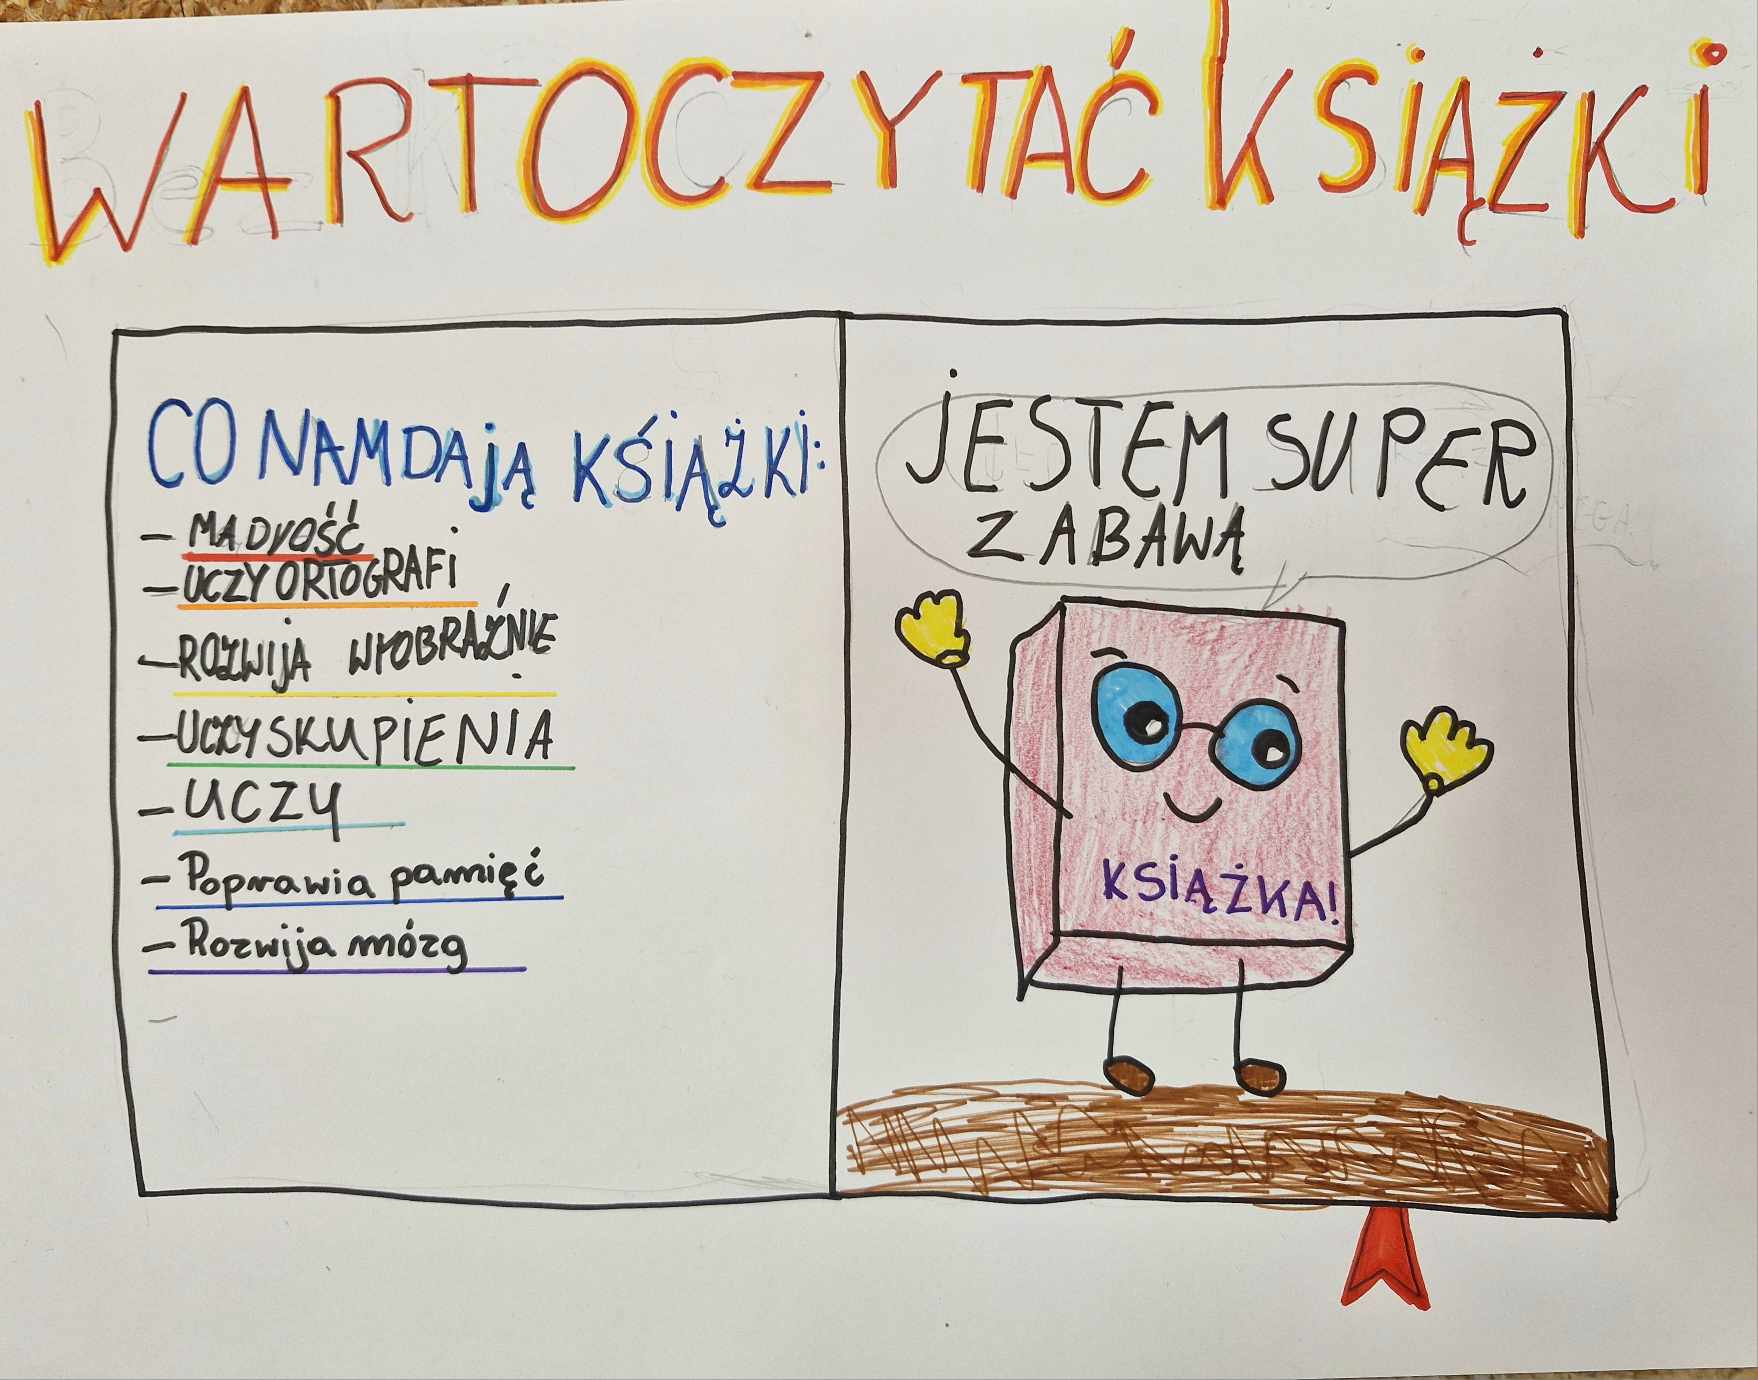 WARTO CZYTAĆ KSIĄŻKI
CO NAM DAJĄ KŚIĄŻKI:
- MADROŚĆ
- UCZY ORTOGRAFI
- ROZWIJA WYOBRAŹNIE
- UCZY SKUPIENIA
- UCZY
- Poprawia pamięć
- Rozwija mózg
-
JESTEM SUPER
ZABAWĄ
KSIĄŻKA!